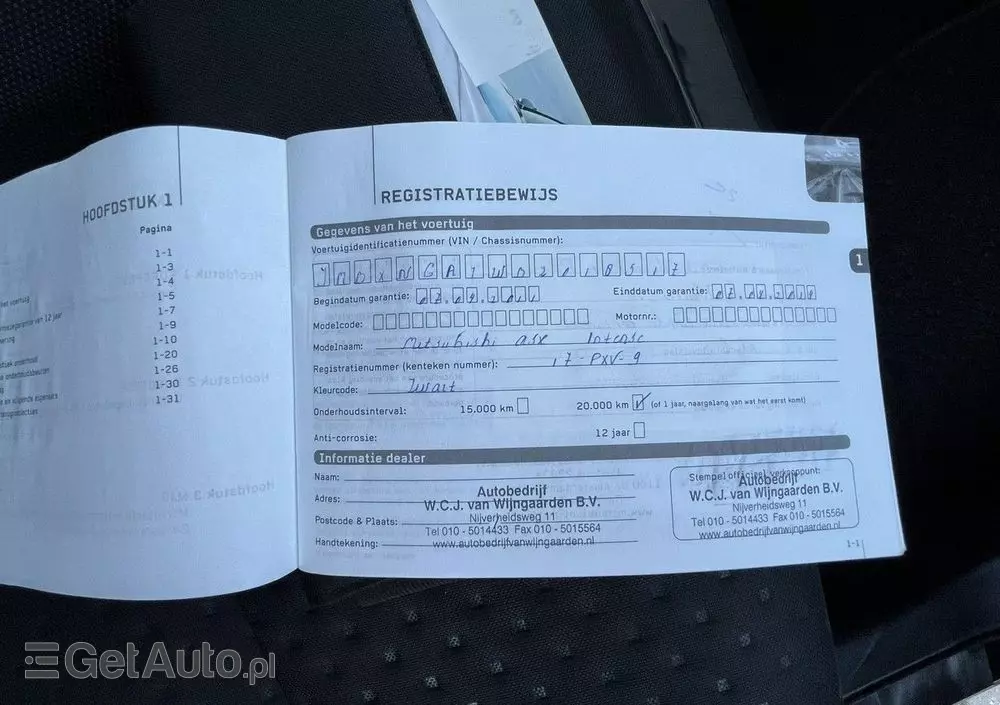 HOOFDSTUK 1
Pagina
1-1
1-3
1-4
1-5
1-7
1-9
1-10
1-20
1-26
1-30
1-31
REGISTRATIEBEWIJS
Gegevens van het voertuig
1
Voertuigidentificatienummer (VIN / Chassisnummer):
Begindatum garantie:
Einddatum garantie:
Modelcode:
Motornr.:
Modelnaam: Mitsubishi asx Intense
Registratienummer (kenteken nummer): 17-PXV-9
Kleurcode: Zwart
Onderhoudsinterval: 15.000 km 20.000 km (of 1 jaar, naargelang van wat het eerst komt)
Anti-corrosie: 12 jaar
Informatie dealer
Naam:
Adres:
Postcode & Plaats:
Handtekening:
Autobedrijf
W.C.J. van Wijngaarden B.V.
Nijverheidsweg 11
Tel 010 - 5014433 Fax 010 - 5015564
www.autobedrijfvanwijngaarden.nl
Stempel officieel verkooppunt:
Autobedrijf
W.C.J. van Wijngaarden B.V.
Nijverheidsweg 11
Tel 010 - 5014433 Fax 010 - 5015564
www.autobedrijfvanwijngaarden.nl
1-1
GetAuto.pl